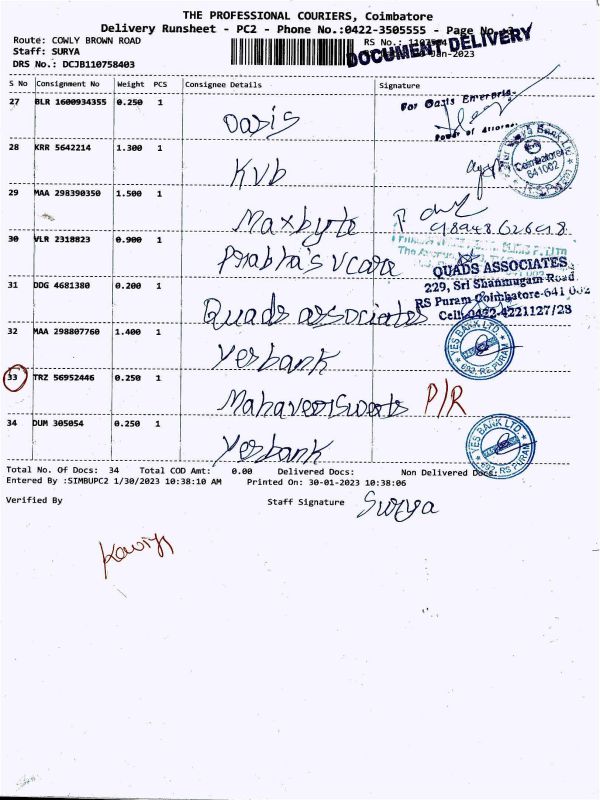 THE PROFESSIONAL COURIERS, Coimbatore
Delivery Runsheet - PC2 - Phone No.:0422-3505555 - Page No.
Route: COWLY BROWN ROAD RS No.:
Staff: SURYA -2023
DRS No.: DCJB110758403
DOCUMENT DELIVERY
S No Consignment No Weight PCS Consignee Details Signature
27 BLR 1600934355 0.250 1 Oasis For Oasis Enterpris
Power of Attorney
28 KRR 5642214 1.300 1 KVb Coimbatore 641002
29 MAA 298390350 1.500 1 Maxbyte
30 VLR 2318823 0.900 1 Prabha's Vcare
31 DDG 4681380 0.200 1 Quads associates QUADS ASSOCIATES
229, Sri Shanmugam Road
RS Puram Coimbatore-641 002
Cell: 0422-4221127/28
32 MAA 298807760 1.400 1 Yesbank YES BANK LTD. RS PURAM
33 TRZ 56952446 0.250 1 Mahaveersweets P/R
34 DUM 305054 0.250 1 Yesbank YES BANK LTD. RS PURAM
Total No. Of Docs: 34 Total COD Amt: 0.00 Delivered Docs: Non Delivered Docs:
Entered By :SIMBUPC2 1/30/2023 10:38:10 AM Printed On: 30-01-2023 10:38:06
Verified By Staff Signature Surya